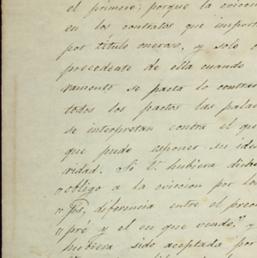 el primero; porque la eviccion
en los contratos que import
por título oneroso, y solo
precedente de ella cuando
ramente se pacta lo contra
todos los pactos las pala
se interpretan contra el que
que pudo esponer su ide
ridad. Si U. hubiera
obligo a la eviccion por los
diferencia entre el prec
pré y el en que vendo," y
hubiera sido aceptada por